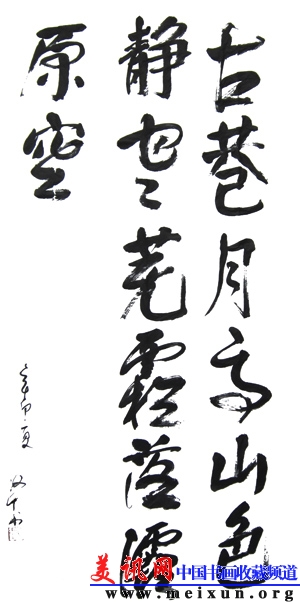 古巷月高山色
静寒芜霜落灞
原空
美讯网中国书画收藏频道
www.meixun.net